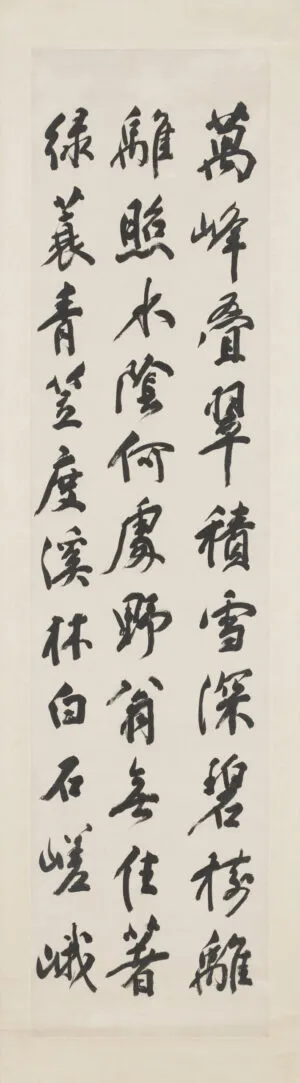 萬峰叠翠積雪深碧樹離
離照水陰何處野翁無住著
緑蓑青笠度溪林白石嵯峨